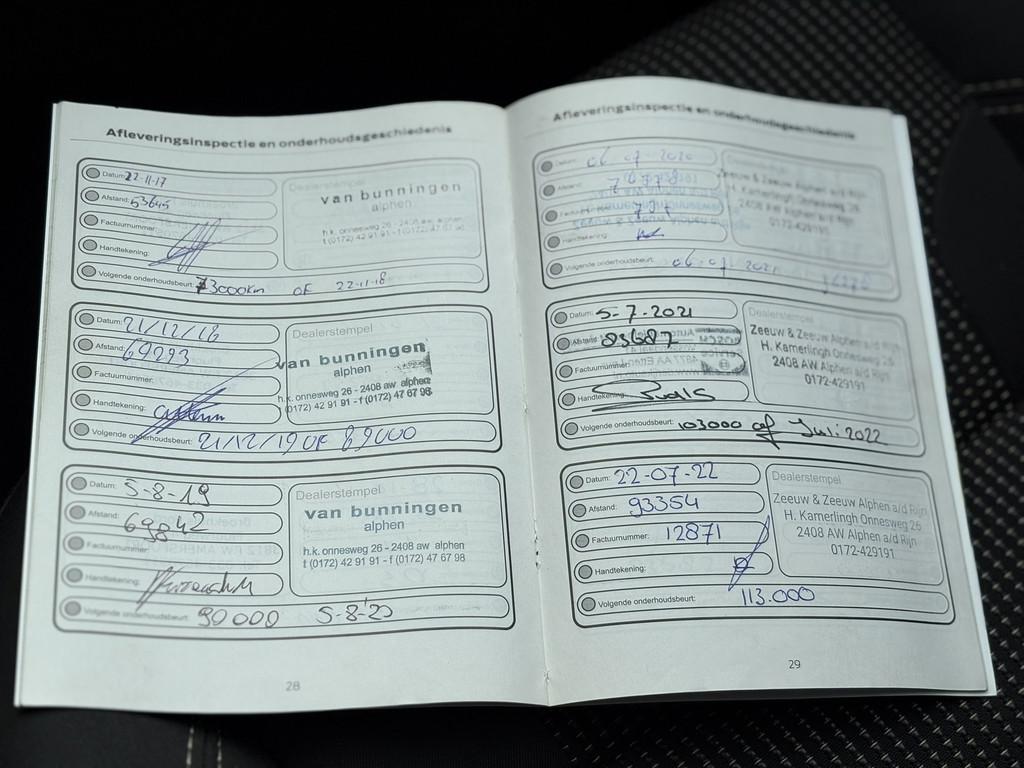 Afleveringsinspectie en onderhoudsgeschiedenis
Datum: 22-11-17
Afstand: 53645
Factuurnummer:
Handtekening:
Volgende onderhoudsbeurt: 73000km OF 22-11-18
Dealerstempel
van bunningen
alphen
h.k. onnesweg 26 - 2408 aw alphen
t (0172) 42 91 91 - f (0172) 47 67 98
Datum: 21/12/18
Afstand: 69293
Factuurnummer:
Handtekening:
Volgende onderhoudsbeurt: 21/12/19 OF 89000
Dealerstempel
van bunningen
alphen
h.k. onnesweg 26 - 2408 aw alphen
t (0172) 42 91 91 - f (0172) 47 67 98
Datum: 5-8-19
Afstand: 69842
Factuurnummer:
Handtekening:
Volgende onderhoudsbeurt: 90000 5-8-'20
Dealerstempel
van bunningen
alphen
h.k. onnesweg 26 - 2408 aw alphen
t (0172) 42 91 91 - f (0172) 47 67 98
28
Afleveringsinspectie en onderhoudsgeschiedenis
Datum: 06 07 2020
Afstand:
Handtekening:
Volgende onderhoudsbeurt: 06-07-2021
Zeeuw & Zeeuw Alphen a/d Rijn
H. Kamerlingh Onnesweg 26
2408 AW Alphen a/d Rijn
0172-429191
Datum: 5-7-2021
Afstand: 83687
Factuurnummer:
Handtekening:
Volgende onderhoudsbeurt: 103000 of Juli 2022
Dealerstempel
Zeeuw & Zeeuw Alphen a/d Rijn
H. Kamerlingh Onnesweg 26
2408 AW Alphen a/d Rijn
0172-429191
Datum: 22-07-22
Afstand: 93354
Factuurnummer: 12871
Handtekening:
Volgende onderhoudsbeurt: 113.000
Dealerstempel
Zeeuw & Zeeuw Alphen a/d Rijn
H. Kamerlingh Onnesweg 26
2408 AW Alphen a/d Rijn
0172-429191
29